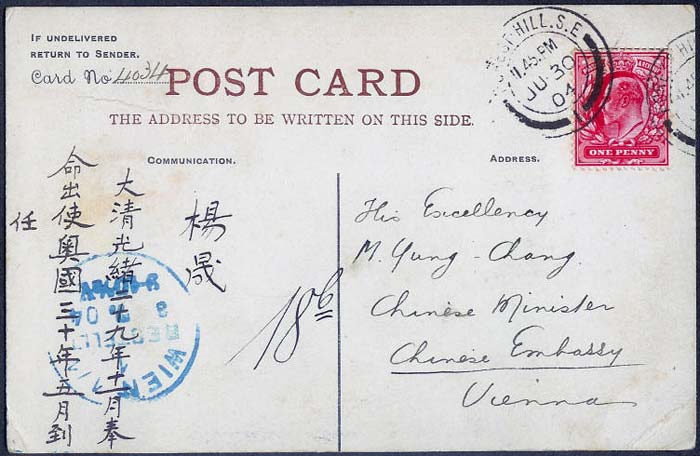 IF UNDELIVERED
RETURN TO SENDER.
Card No 4034
POST CARD
THE ADDRESS TO BE WRITTEN ON THIS SIDE.
COMMUNICATION.
ADDRESS.
HILL. S.E
11.45.PM
JU 30
04
ONE PENNY
楊晟
大清光緒二十九年十一月奉
命出使奧國三十年五月到
任
18b
WIEN
04
His Excellency
M. Yung-Chang
Chinese Minister
Chinese Embassy
Vienna